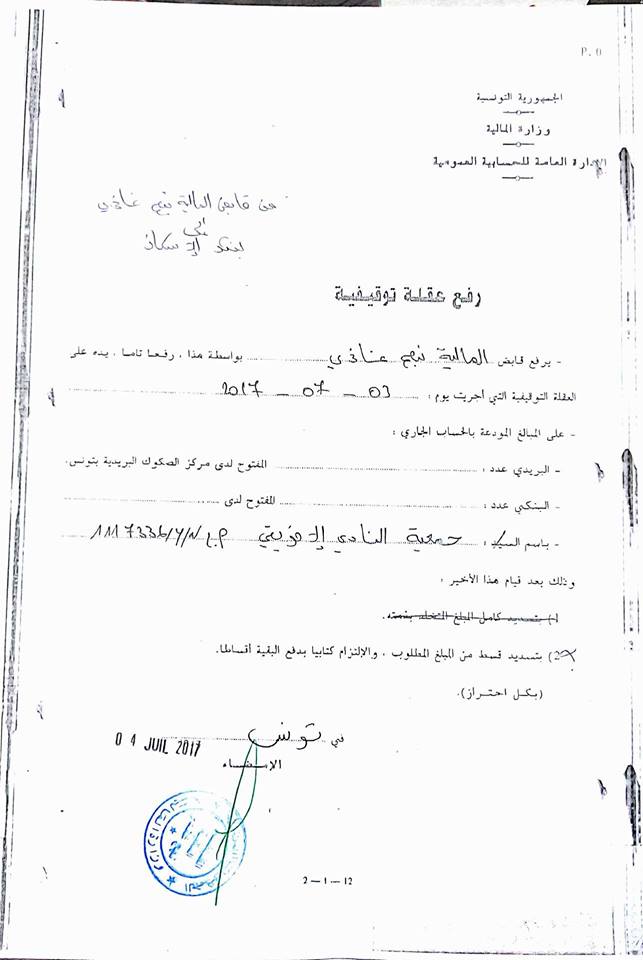 P. 0
الجمهورية التونسية
وزارة المالية
الإدارة العامة للمحاسبة العمومية
من قابض المالية نهج غاندي
إلى
بنك الإسكان
رفع عقلة توقيفية
- يرفع قابض المالية نهج غاندي بواسطة هذا ، رفعا تاما ، يده على
العقلة التوقيفية التي أجريت يوم : 03 - 07 - 2017
- على المبالغ المودعة بالحساب الجاري :
- البريدي عدد : المفتوح لدى مركز الصكوك البريدية بتونس.
- البنكي عدد : المفتوح لدى
- باسم السيد : جمعية النادي الإفريقي 1117336/Y/N
وذلك بعد قيام هذا الأخير :
1) بتسديد كامل المبلغ المتخلد بذمته.
2) بتسديد قسط من المبلغ المطلوب ، والإلتزام كتابيا بدفع البقية أقساطا.
(بكل احتراز).
في تونس 04 JUIL 2017
الإمضاء
2 - 1 - 12